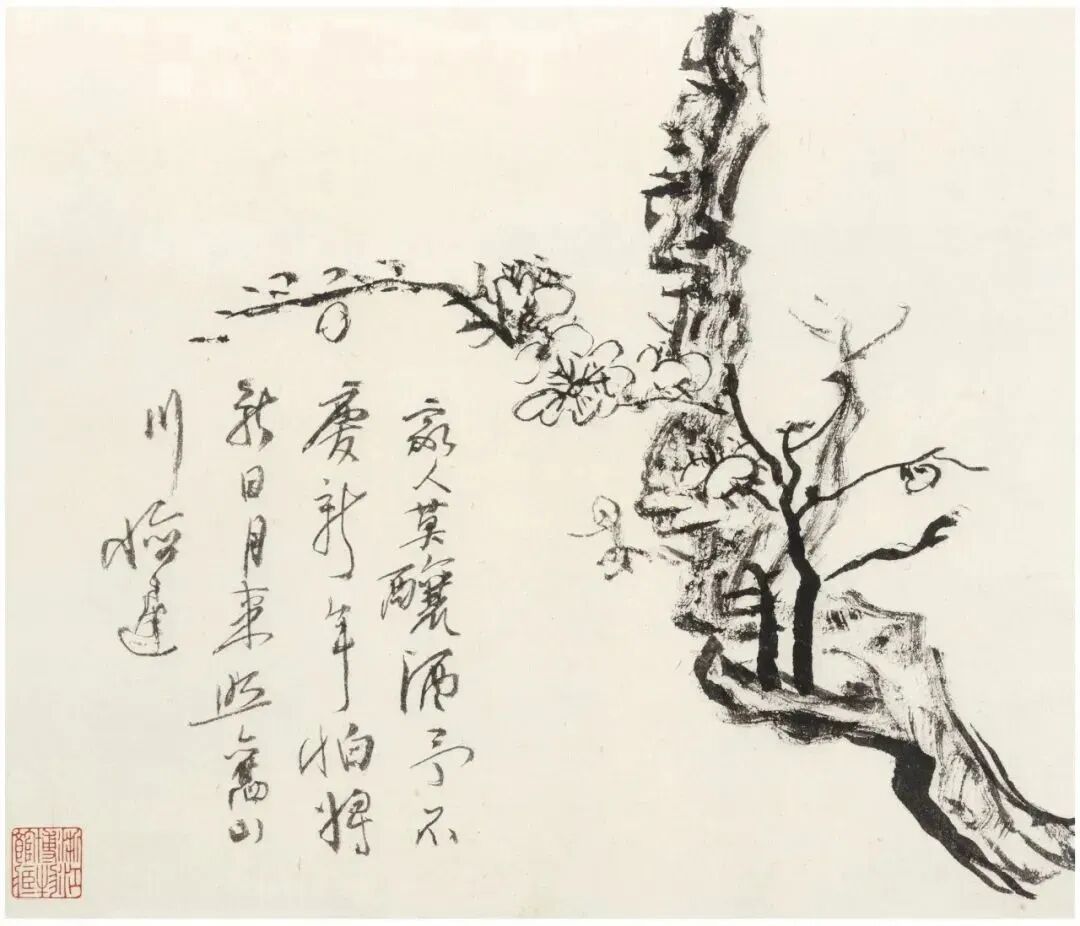 家人莫釀酒予不
慶新年怕將
新日月來照舊山
川
浙江
博物
館